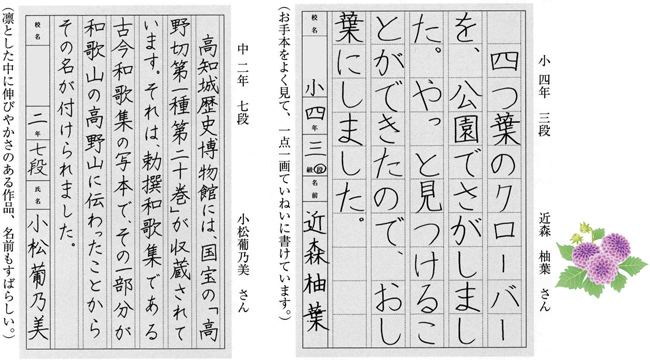 小四年 三段 近森 柚葉 さん
四つ葉のクローバー
を、公園でさがしまし
た。やっと見つけるこ
とができたので、おし
葉にしました。
校名 小四年三級段 名前 近森柚葉
(お手本をよく見て、一点一画ていねいに書けています。)
中二年 七段 小松葡乃美 さん
高知城歴史博物館には、国宝の「高
野切第一種第二十巻」が収蔵されて
います。それは、勅撰和歌集である
古今和歌集の写本で、その一部分が
和歌山の高野山に伝わったことから
その名が付けられました。
校名 二年七段 氏名 小松葡乃美
(凛とした中に伸びやかさのある作品、名前もすばらしい。)